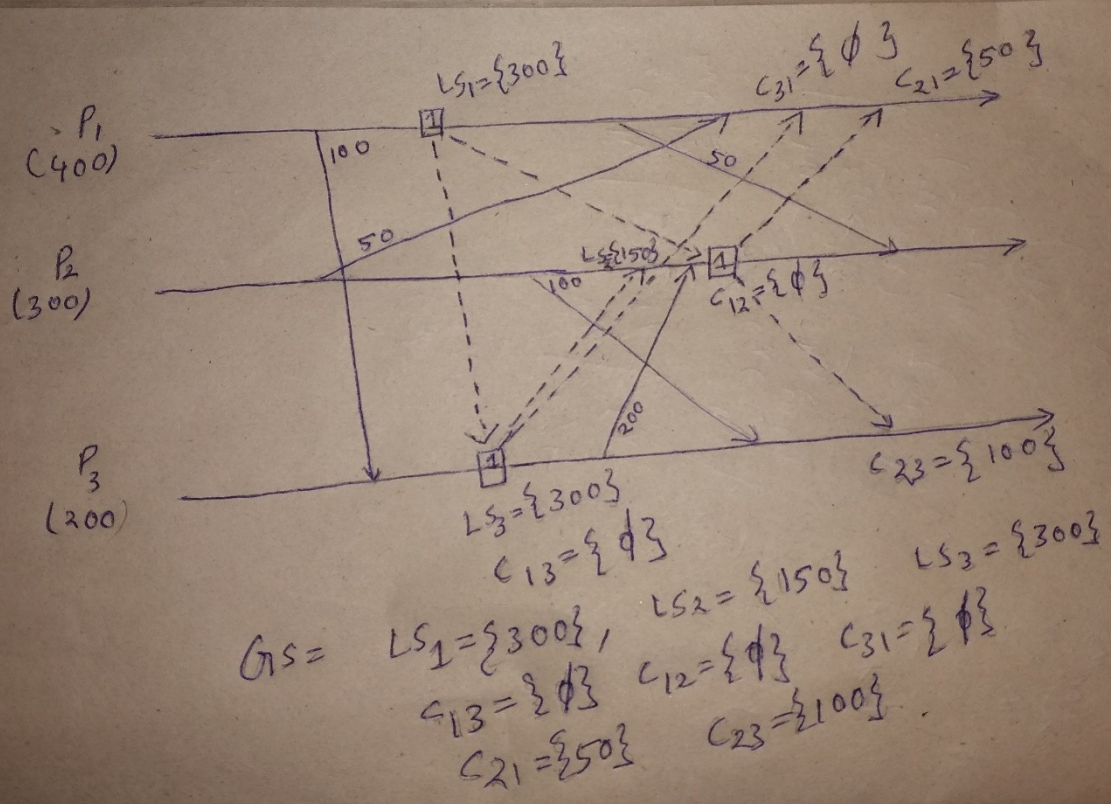 LS₁={300}
C₃₁={ϕ}
C₂₁={50}
P₁
(400)
1
100
50
50
P₂
(300)
LS₂{150}
1
100
C₁₂={ϕ}
200
P₃
(200)
1
LS₃={300}
C₁₃={ϕ}
C₂₃={100}
GS= LS₁={300}, LS₂={150} LS₃={300}
C₁₃={ϕ} C₁₂={ϕ} C₃₁={ϕ}
C₂₁={50} C₂₃={100}.